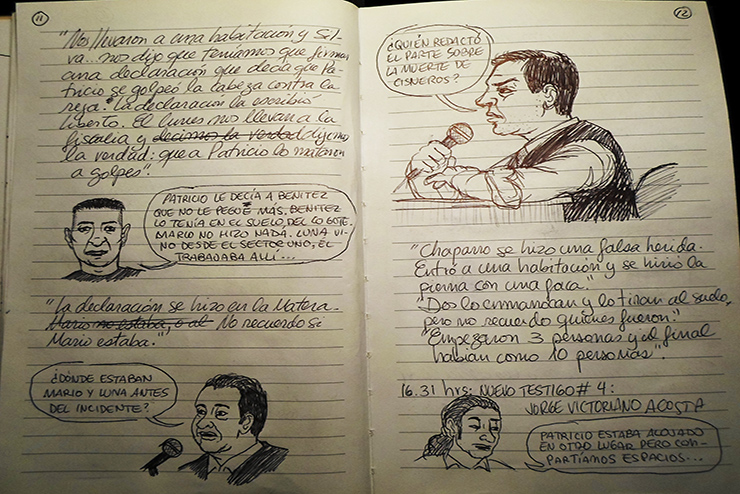 11
"Nos llevaron a una habitación y Sil-
va... nos dijo que teníamos que firmar
una declaración que decía que Pa-
tricio se golpeó la cabeza contra la
reja. La declaración la escribió
Liberto. El lunes nos llevan a la
fiscalía y decimos la verdad dijimos
la verdad: que a Patricio lo mataron
a golpes".
PATRICIO LE DECÍA A BENITEZ
QUE NO LE PEGUE MÁS. BENITEZ
LO TENÍA EN EL SUELO, DEL COGOTE.
MARIO NO HIZO NADA. LUNA VI-
NO DESDE EL SECTOR UNO, ÉL
TRABAJABA ALLÍ...
"La declaración se hizo en la Matera.
Mario no estaba, o al No recuerdo si
Mario estaba."
¿DÓNDE ESTABAN
MARIO Y LUNA ANTES
DEL INCIDENTE?
12
¿QUIÉN REDACTÓ
EL PARTE SOBRE
LA MUERTE DE
CISNEROS?
"Chaparro se hizo una falsa herida.
Entró a una habitación y se hirió la
pierna con una faca."
"Dos lo
y lo tiran al suelo,
pero no recuerdo quiénes fueron."
"Empezaron 3 personas y al final
habían como 10 personas".
16.31 hrs: NUEVO TESTIGO # 4:
JORGE VICTORIANO ACOSTA
PATRICIO ESTABA ALOJADO
EN OTRO LUGAR PERO COM-
PARTÍAMOS ESPACIOS...